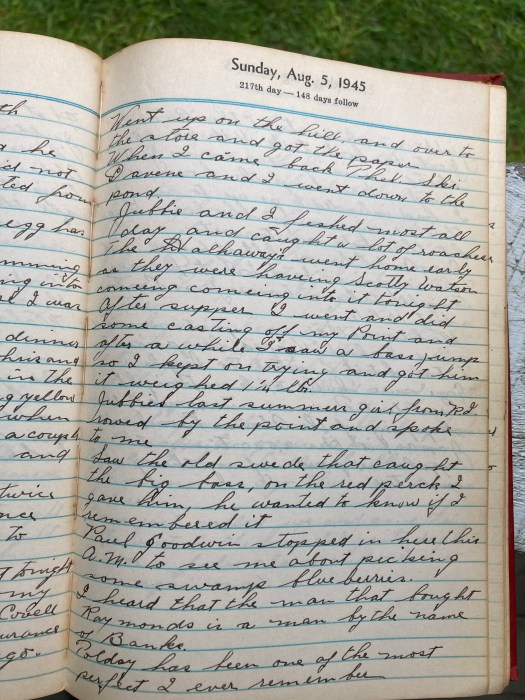 th
he
id not
ted from
egg has
mming
ing into
I was
dinner
his and
in the
g yellow
when
a couple
and
twice
nce
to
tonight
my
Covell
urance
ago.
Sunday, Aug. 5, 1945
217th day — 148 days follow
Went up on the hill and over to
the store and got the paper
When I came back Thel Ski
Lavene and I went down to the
pond.
Jubbie and I fished most all
day and caught a lot of roaches
The Hathaways went home early
as they were having Scotty Watson
coming comeing into it tonight
After supper I went and did
some casting off my Point and
after a while I saw a bass jump
so I kept on trying and got him
it weighed 1 1/4 lb.
Jubbies last summers girl from R.I.
rowed by the point and spoke
to me
Saw the old swede that caught
the big bass, on the red perch I
gave him, he wanted to know if I
remembered it
Paul Goodwin stopped in here this
A.M. to see me about picking
some swamp blueberries.
I heard that the man that bought
Raymonds is a man by the name
of Banks.
Today has been one of the most
perfect I ever remember